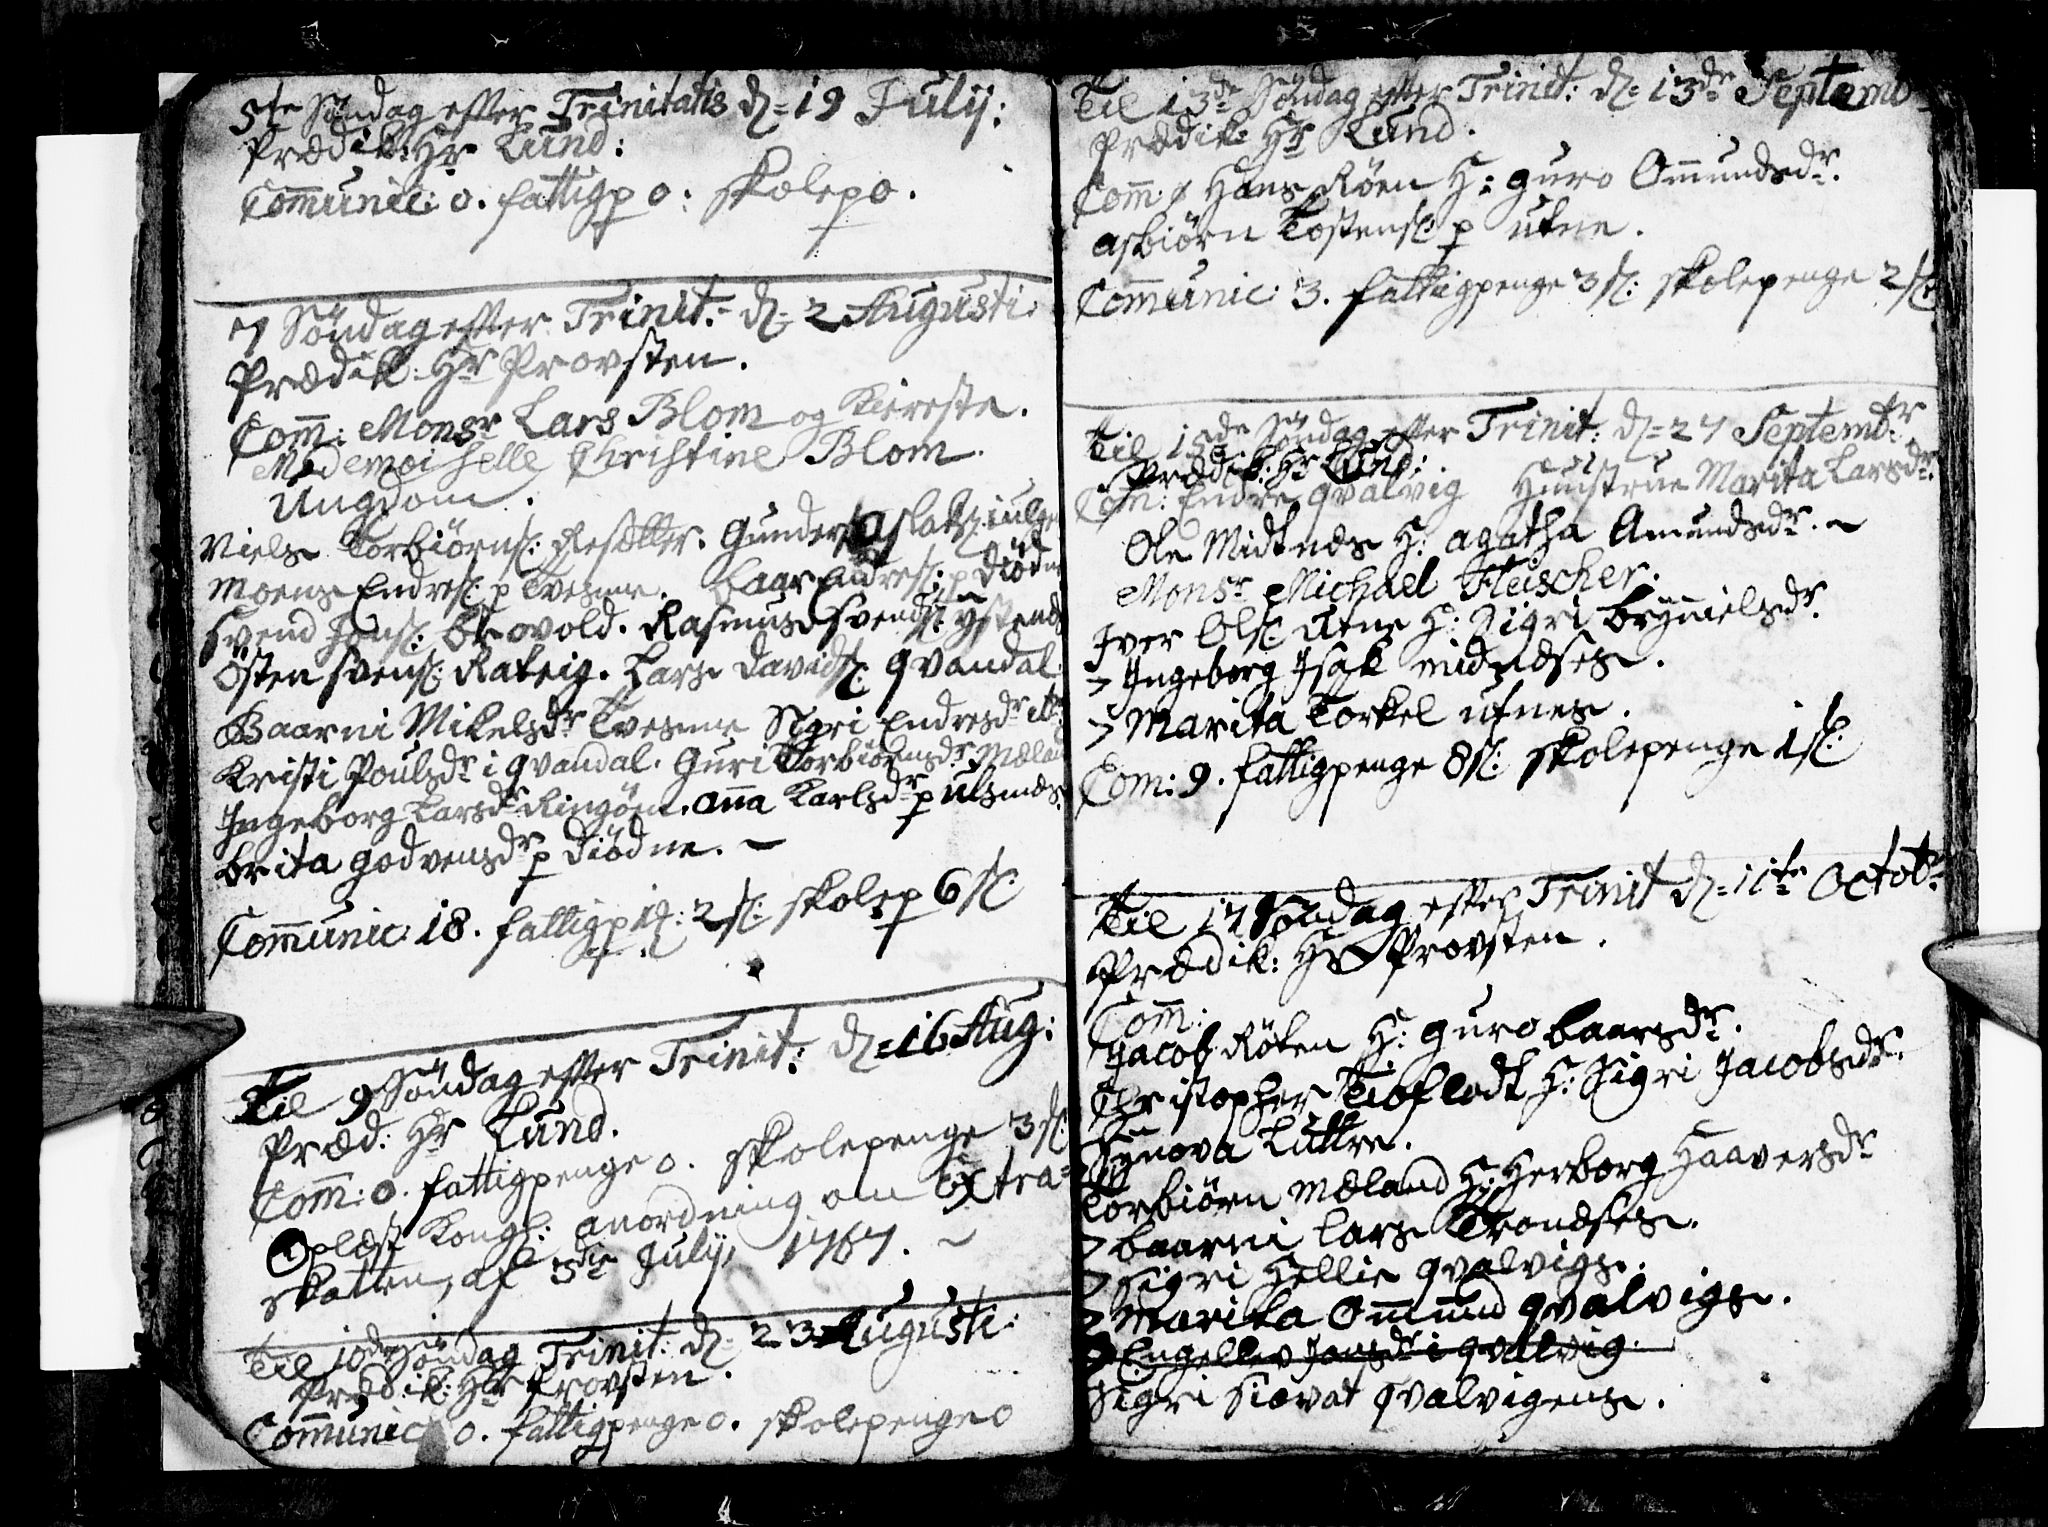 5te Söndag efter Trinitatis d= 19 Julij:
Prædik: Hr Lund:
Com̅unic: 0. fattigp 0: skolep 0.
7 Söndag efter Trinit: d= 2 Augusti:
Prædik: Hr Provsten.
Com̅: Monsr Lars Blom og Kiereste.
Mademoiselle Christine Blom.
Ungdom.
Niels Torbiörns: Resætter. Gunder Aslaks:
Moens Endres: p Tvesme. Baar Endres: p Diödne
Svend Jons: Brovold. Rasmus Svends: ÿstends
Östen Svens: Ratvig. Lars Davids: Qvandal
Baarni Mikelsdr Tvesme Sigri Endresdr
Kristi Poulsdr i Qvandal. Guri Torbiörnsdr Mæland
Ingeborg Larsdr Ringöen. Anna Karlsdr p Ulsnæs.
Brita Godvensdr p Diödne. –
Com̅unic: 18. fattigp 1d: 2s: skolep 6s:
Til 9 Söndag efter Trinit: d= 16 Aug:
Præd: Hr Lund.
Com̅: 0. fattigpenge 0. skolepenge 3s:
Oplæst Kongl: anordning om Extra=
skatten, af 3die Julij 1767. –
Til 10de Söndag Trinit: d= 23 Augusti:
Prædik: Hr Provsten.
Com̅unic 0. fattigpenge 0. skolepenge 0
Til 13de Söndag efter Trinit: d= 13de Septemb
Prædik: Hr Lund.
Com̅: Hans Röen H: Guro Om̅undsdr.
Asbiörn Tostens: p Utne.
Com̅unic: 3. fattigpenge 3s: skolepenge 2s:
Til 15de Söndag efter Trinit: d= 27 Septembr
Prædik: Hr Lund:
Com: Endre Qvalvig Hustrue Marita Larsdr.
Ole Midtnæs H: Agatha Amundsdr. –
Monsr Michael Fleischer.
Iver Ols: Utne H: Sigri Brÿnielsdr.
Ingeborg Isak midnæses.
Marita Torkel Utnes.
Com: 9. fattigpenge 8s: skolepenge 1s:
Til 17 Söndag efter Trinit d= 11te Octobr
Prædik: Hr Provsten.
Com̅:
Jacob Röten H: Guro Baarsdr.
Christopher Tioflodt H: Sigri Jacobsdr.
Synova Luttre.
Torbiörn Mæland H: Herborg Haaversdr
Baarni Lars Trondses.
Sigri Hellie Qvalvigs.
Marita Om̅und Qvalvigs.
Engellev Jonsdr i Qvalvig.
Sigri Siovat Qvalvigens.